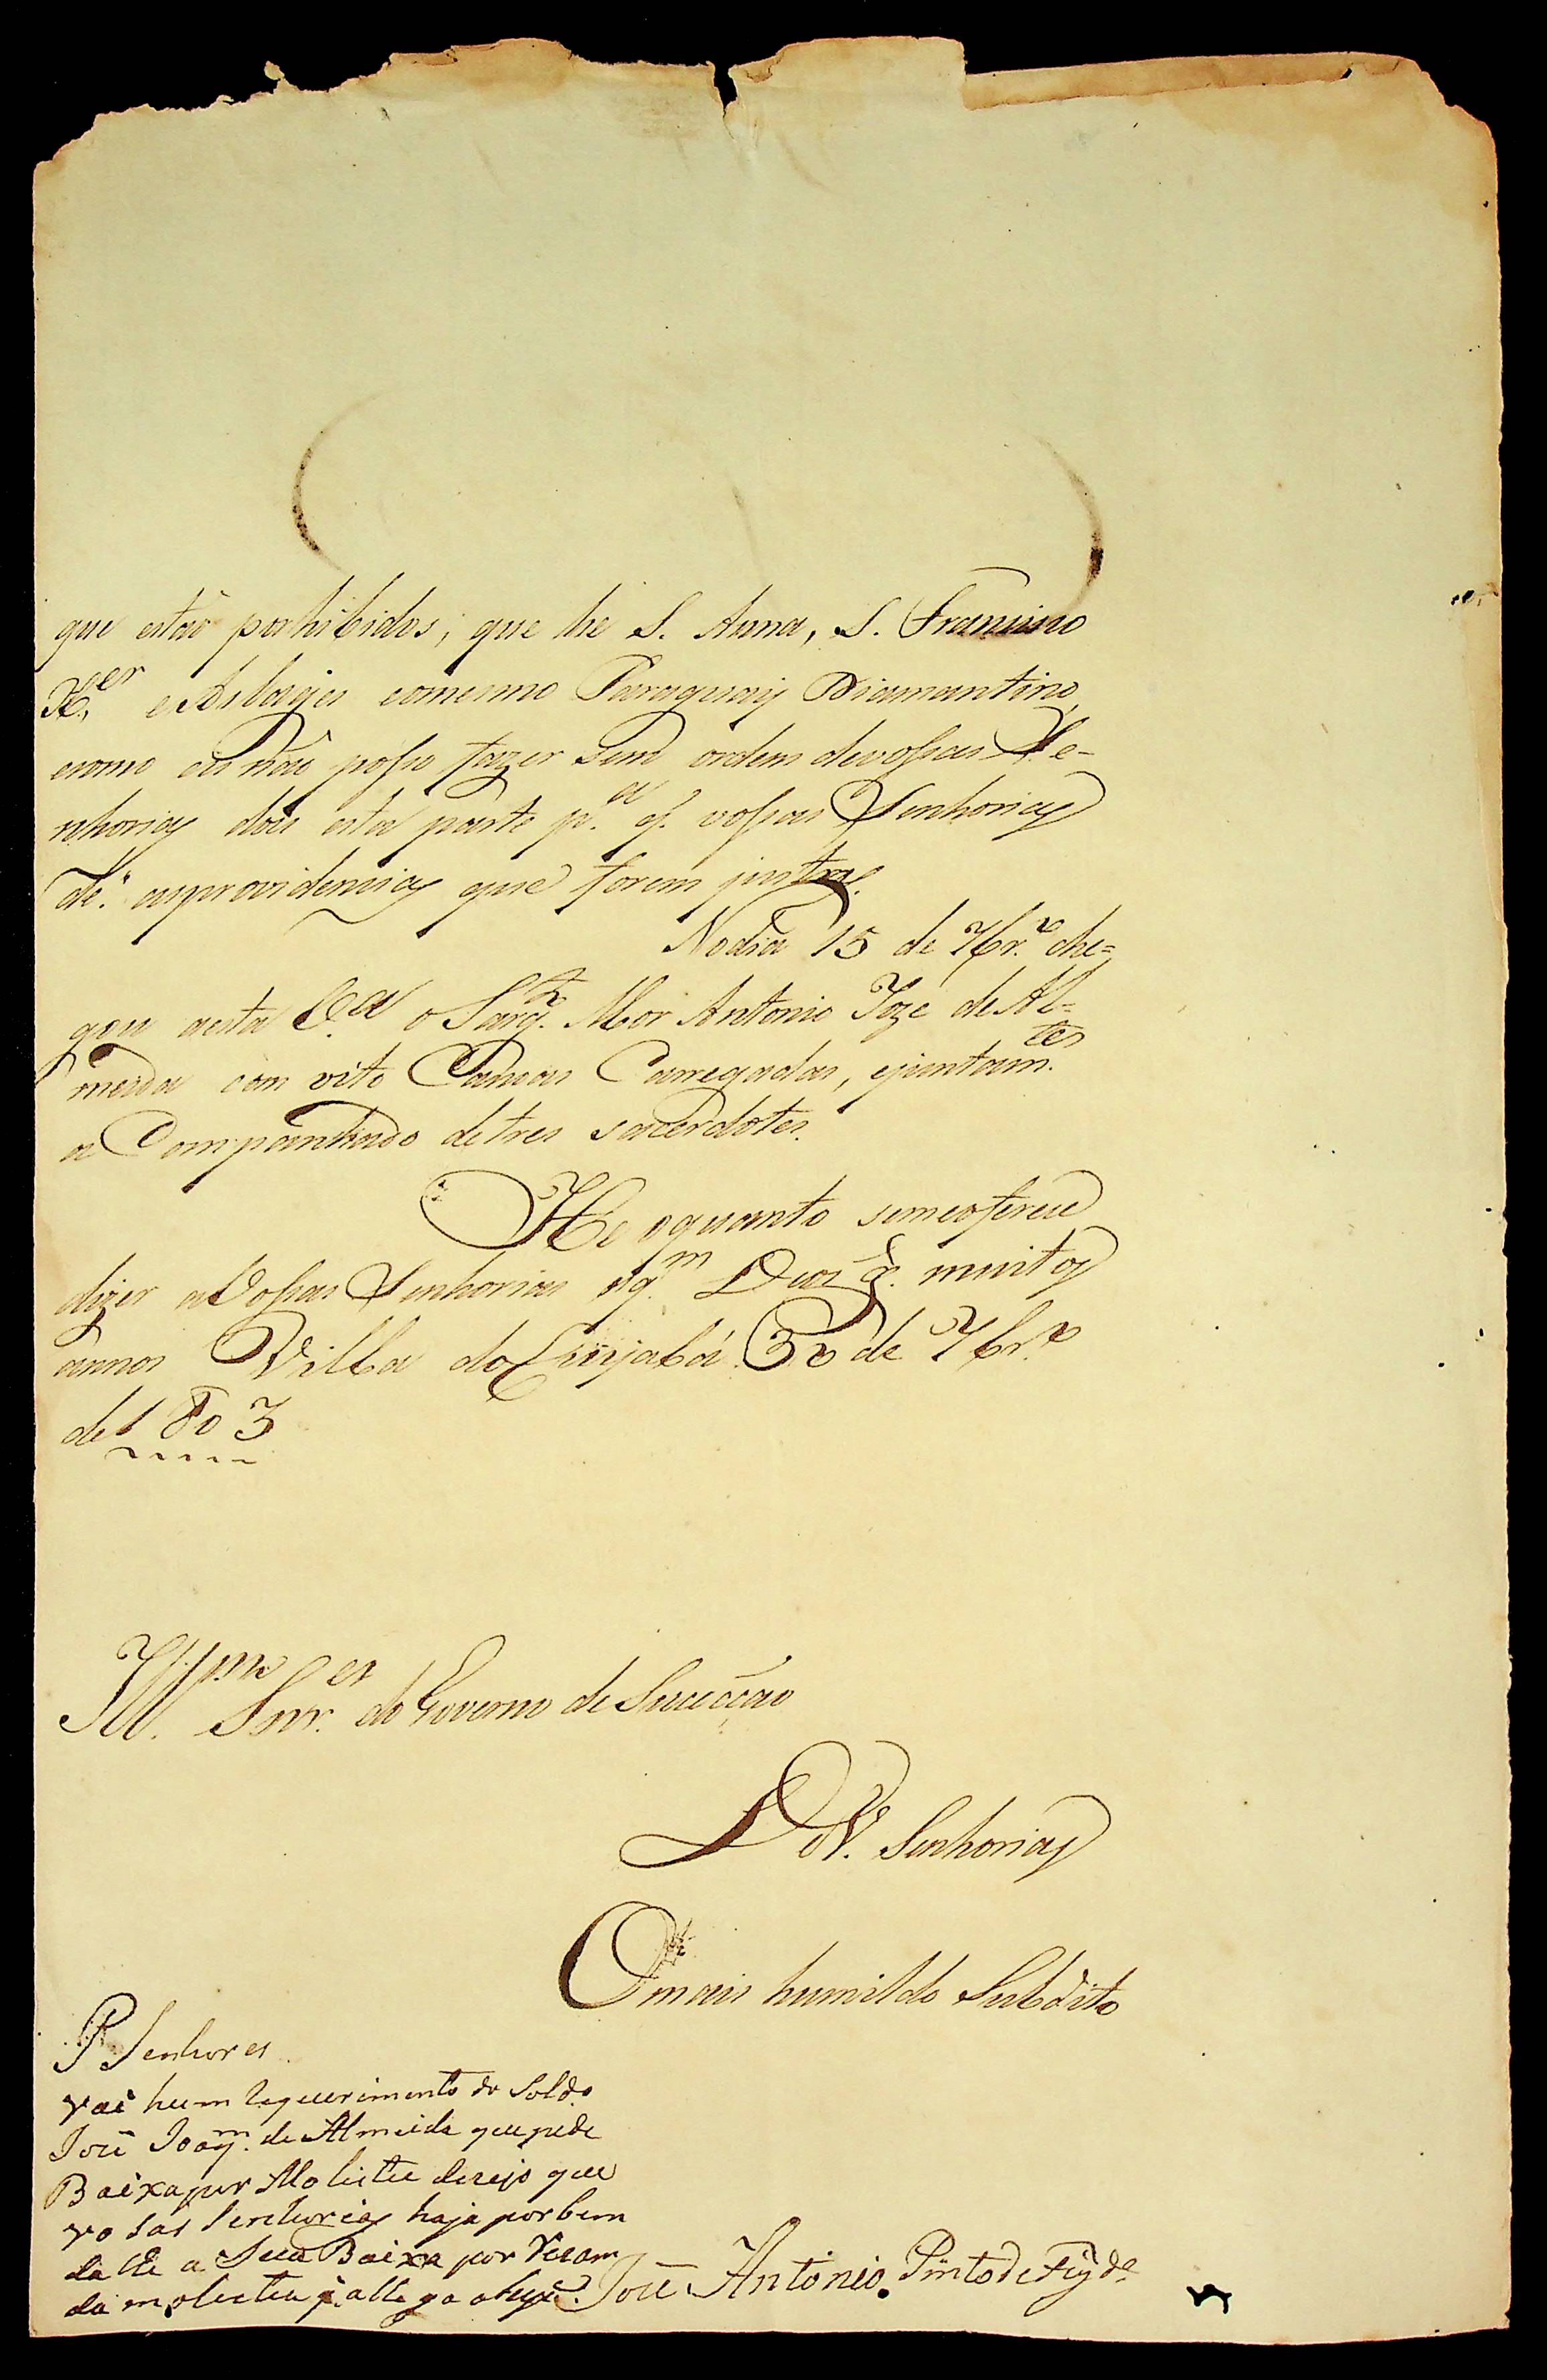 que estaõ porhibidos, que he S. Anna, S. Francisco
X.er e As lages eomesmo Paraguay Diamantino,
ecomo eu naõ poſso fazer sem ordem devoſsas Se-
nhorias dou esta parte p.a q̃. voſsas Senhorias
dê. asprovidencias que forem justas.
Nodia 15 de 7br.o che=
gou aesta V.a o Sarg.to Mor Antonio Joze de Al=
meida com oito Canoas Carregadas, ejuntam.tes
a Companhado detres sacerdotes.
He oquanto semeoferece
dizer aVoſsas Senhorias aq.m Deos g. muitos
annos Villa do Cuyabá 30 de 7br.o
de 1803
Ill.mos Snr.es do Governo de Sucecçaõ
De V. Senhorias
O mais humilde Subdito
P. Senhores
vai hum Requerimento do Sold.o
José Joaq.m de Almeida que pede
Baixa por Molestia desejo que
vosas Senhorias haja por bem
dalhe a Sua Baixa por
da molestia q̃ allega
José Antonio Pinto de Fig.do